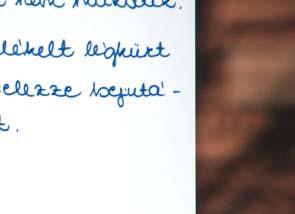 nem működik.
lékelt légkürt
elezze bejutá-
t.